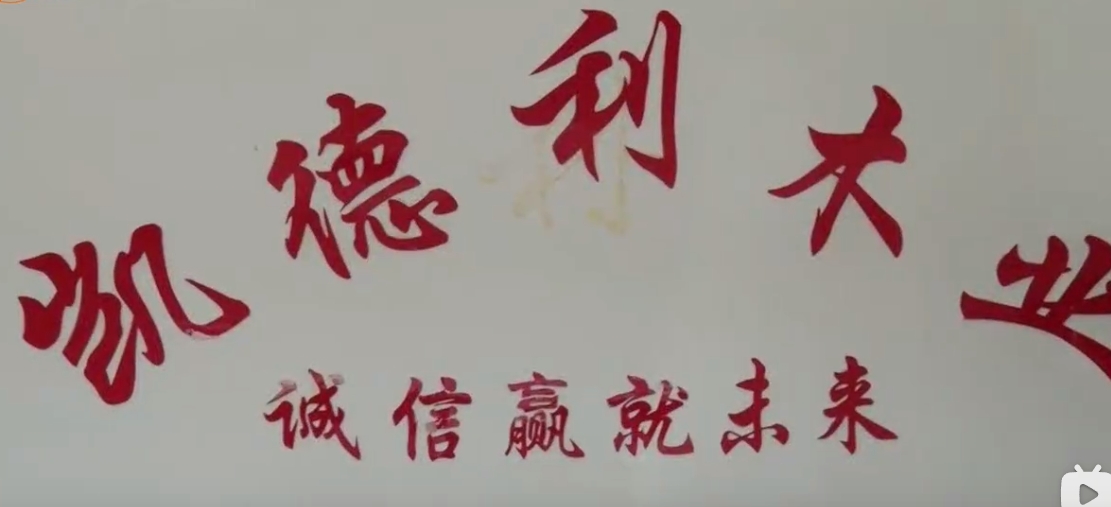 凯德利大业
诚信赢就未来